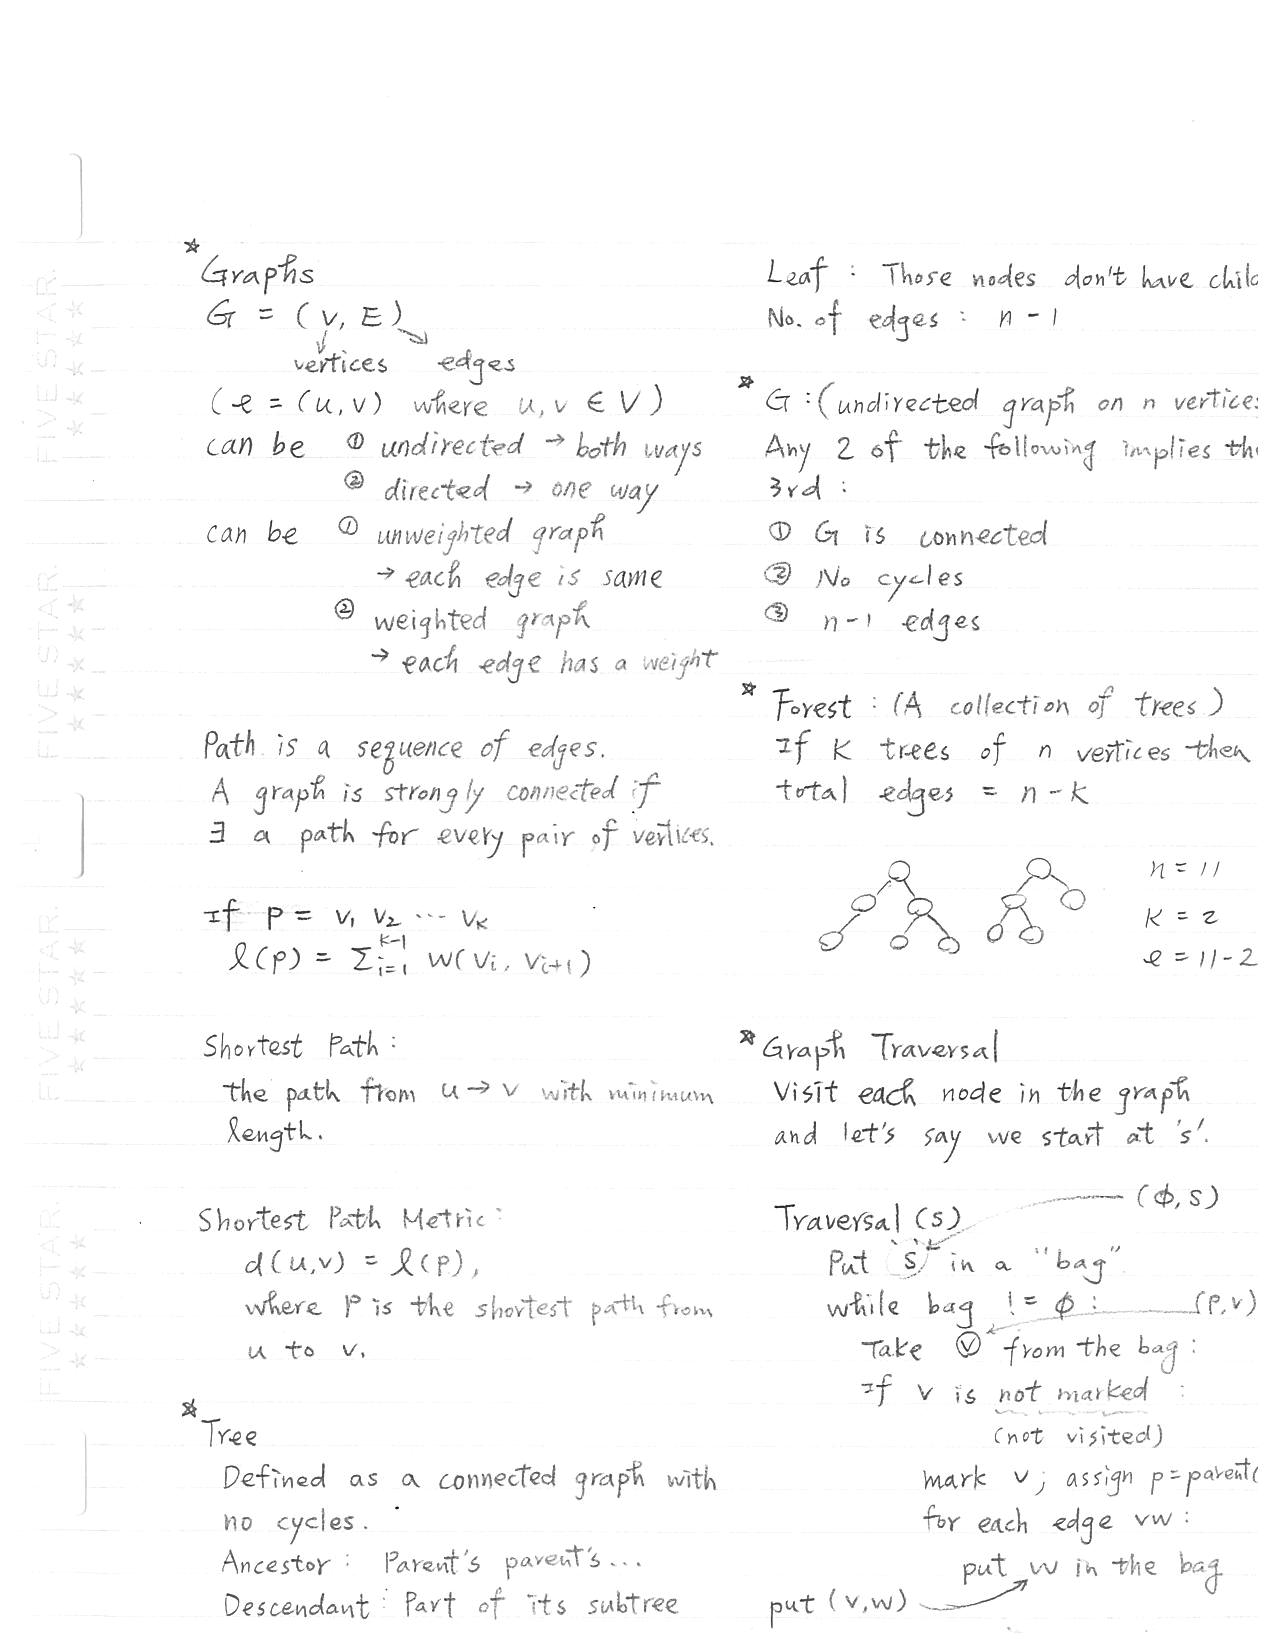 Graphs
G = (V, E)
vertices edges
(e = (u, v) where u, v ∈ V)
can be ① undirected → both ways
② directed → one way
can be ① unweighted graph
→ each edge is same
② weighted graph
→ each edge has a weight
Path is a sequence of edges.
A graph is strongly connected if
∃ a path for every pair of vertices.
If P = v₁ v₂ ... vₖ
l(p) = Σᵢ₌₁ᵏ⁻¹ w(vᵢ, vᵢ₊₁)
Shortest Path:
the path from u → v with minimum
length.
Shortest Path Metric:
d(u,v) = l(p),
where P is the shortest path from
u to v.
Tree
Defined as a connected graph with
no cycles.
Ancestor: Parent's parent's...
Descendant: Part of its subtree
Leaf : Those nodes don't have chil
No. of edges : n - 1
G : (undirected graph on n vertices
Any 2 of the following implies the
3rd :
① G is connected
② No cycles
③ n-1 edges
Forest : (A collection of trees)
If K trees of n vertices then
total edges = n - k
n = 11
K = 2
e = 11 - 2
Graph Traversal
Visit each node in the graph
and let's say we start at 's'.
(ϕ, s)
Traversal (s)
Put 's' in a "bag"
while bag != ϕ : (p, v)
Take v from the bag :
If v is not marked :
(not visited)
mark v ; assign p = parent(
for each edge vw :
put w in the bag
put (v, w)
FIVE STAR.
FIVE STAR.
FIVE STAR.
FIVE STAR.